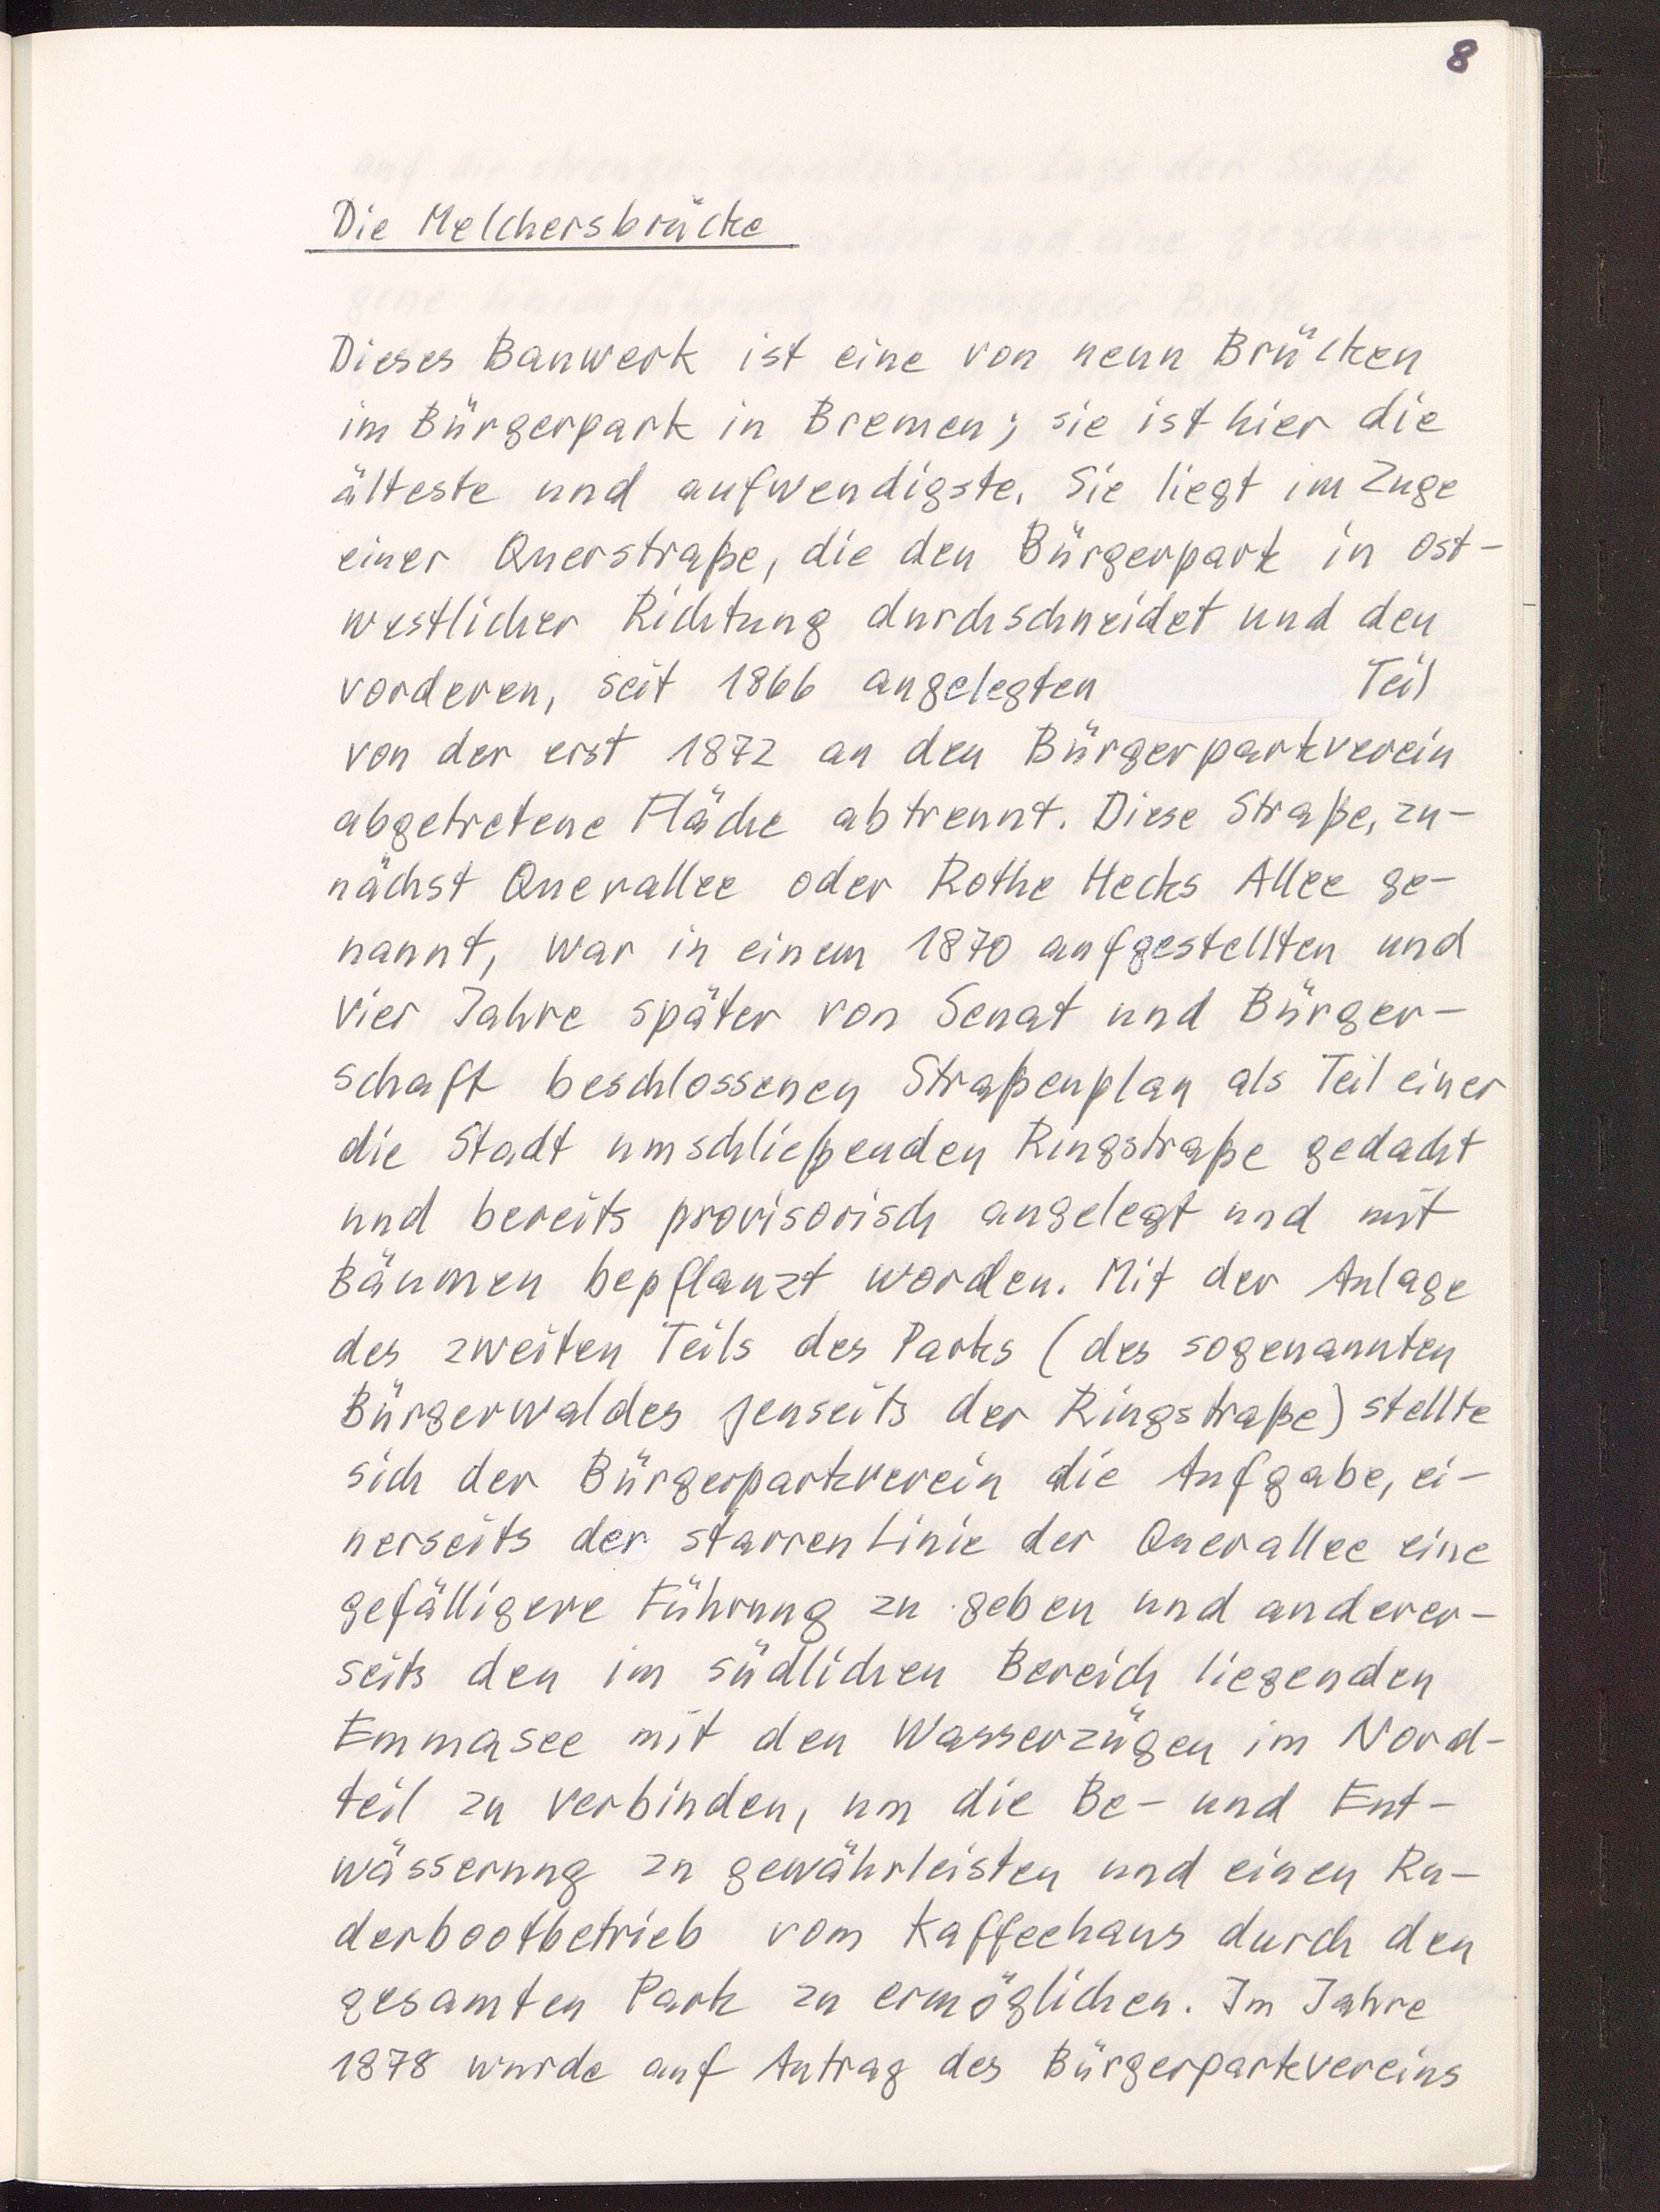 8
Die Melchersbrücke
Dieses Bauwerk ist eine von neun Brücken
im Bürgerpark in Bremen; sie ist hier die
älteste und aufwendigste. Sie liegt im Zuge
einer Querstraße, die den Bürgerpark in ost-
westlicher Richtung durchschneidet und den
vorderen, seit 1866 angelegten Teil
von der erst 1872 an den Bürgerparkverein
abgetretene Fläche abtrennt. Diese Straße, zu-
nächst Querallee oder Rothe Hecks Allee ge-
nannt, war in einem 1870 aufgestellten und
vier Jahre später von Senat und Bürger-
schaft beschlossenen Straßenplan als Teil einer
die Stadt umschließenden Ringstraße gedacht
und bereits provisorisch angelegt und mit
Bäumen bepflanzt worden. Mit der Anlage
des zweiten Teils des Parks (des sogenannten
Bürgerwaldes jenseits der Ringstraße) stellte
sich der Bürgerparkverein die Aufgabe, ei-
nerseits der starren Linie der Querallee eine
gefälligere Führung zu geben und anderer-
seits den im südlichen Bereich liegenden
Emmasee mit den Wasserzügen im Nord-
teil zu verbinden, um die Be- und Ent-
wässerung zu gewährleisten und einen Ru-
derbootbetrieb vom Kaffeehaus durch den
gesamten Park zu ermöglichen. Im Jahre
1878 wurde auf Antrag des Bürgerparkvereins